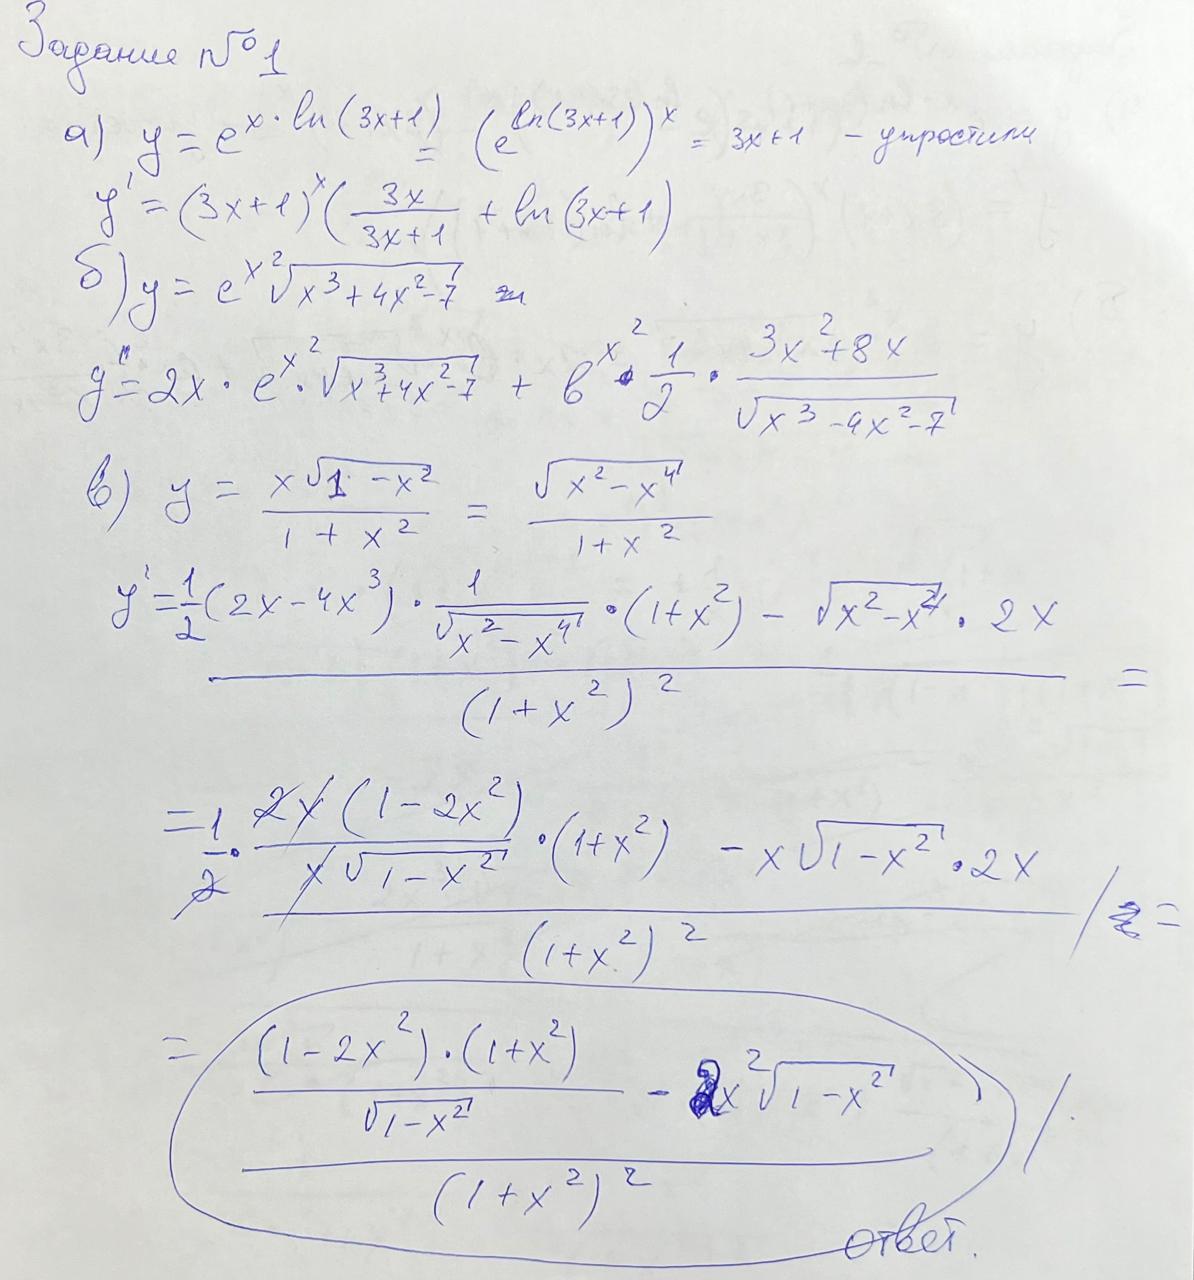 Задание №1
а) y = e^{x·ln(3x+1)} = (e^{ln(3x+1)})^x = 3x+1 - упростили
y' = (3x+1)^x (3x/(3x+1) + ln(3x+1)
б) y = e^{x^2}√(x^3+4x^2-7)
y' = 2x · e^{x^2} · √(x^3+4x^2-7) + e^{x^2} · 1/2 · (3x^2+8x)/√(x^3-4x^2-7)
в) y = x√(1-x^2)/(1+x^2) = √(x^2-x^4)/(1+x^2)
y' = (1/2(2x-4x^3) · 1/√(x^2-x^4) · (1+x^2) - √(x^2-x^4) · 2x)/(1+x^2)^2 =
= (1/2 · 2x(1-2x^2)/(x√(1-x^2)) · (1+x^2) - x√(1-x^2) · 2x)/(1+x^2)^2 / =
= ((1-2x^2)·(1+x^2)/√(1-x^2) - 2x^2√(1-x^2))/(1+x^2)^2 /
ответ.